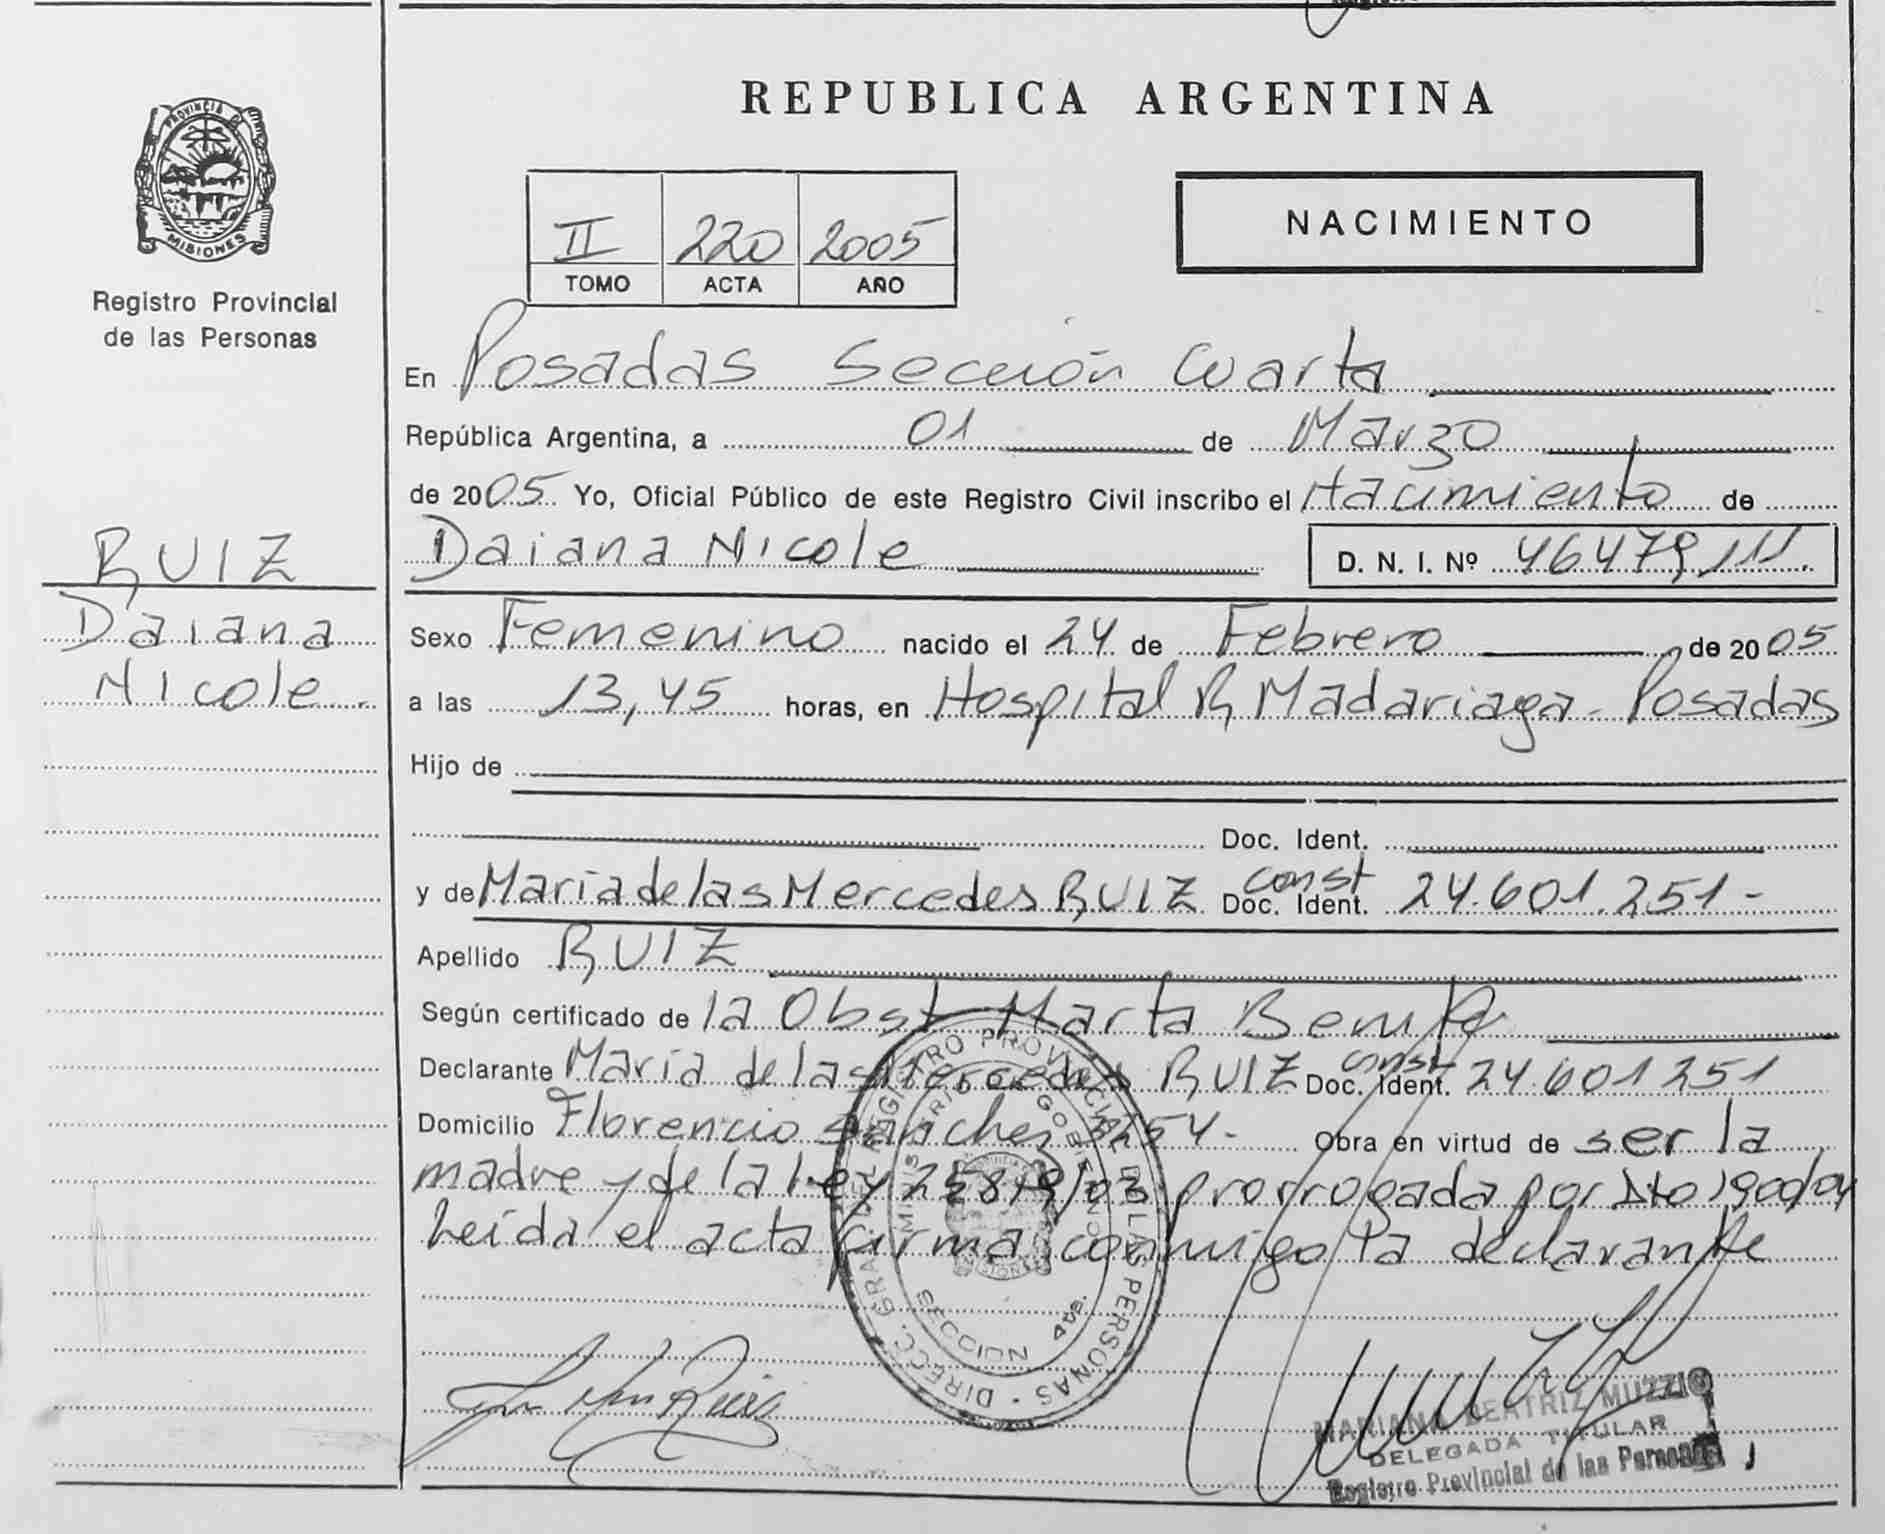 REPUBLICA ARGENTINA
PROVINCIA DE MISIONES
Registro Provincial
de las Personas
II 220 2005
TOMO ACTA AÑO
NACIMIENTO
En Posadas Sección Cuarta
República Argentina, a 01 de Marzo
de 2005 Yo, Oficial Público de este Registro Civil inscribo el Nacimiento de
Daiana Nicole D. N. I. Nº 46479,111.
RUIZ
Daiana
Nicole.
Sexo Femenino nacido el 24 de Febrero de 2005
a las 13,45 horas, en Hospital R Madariaga - Posadas
Hijo de
Doc. Ident.
y de Maria de las Mercedes RUIZ const Doc. Ident. 24.601.251-
Apellido RUIZ
Según certificado de la Obst Marta
Declarante Maria de las Mercedes RUIZ const Doc. Ident. 24.601251
Domicilio Florencio Sanches 3254- Obra en virtud de ser la
madre y de la Ley prorrogada por Dto 1900/04
Leida el acta firma conmigo la declarante
DIRECC. GRAL. DEL REGISTRO PROVINCIAL DE LAS PERSONAS
MINISTERIO DE GOBIERNO
SECCION 4ta.
Ruiz
MARIANA BEATRIZ MUZZIO
DELEGADA TITULAR
Registro Provincial de las Personas